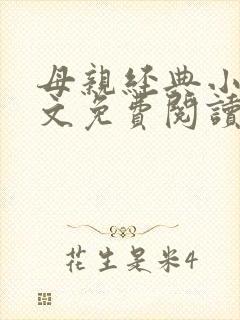 母親經典小
文免費閱讀
花生是米4